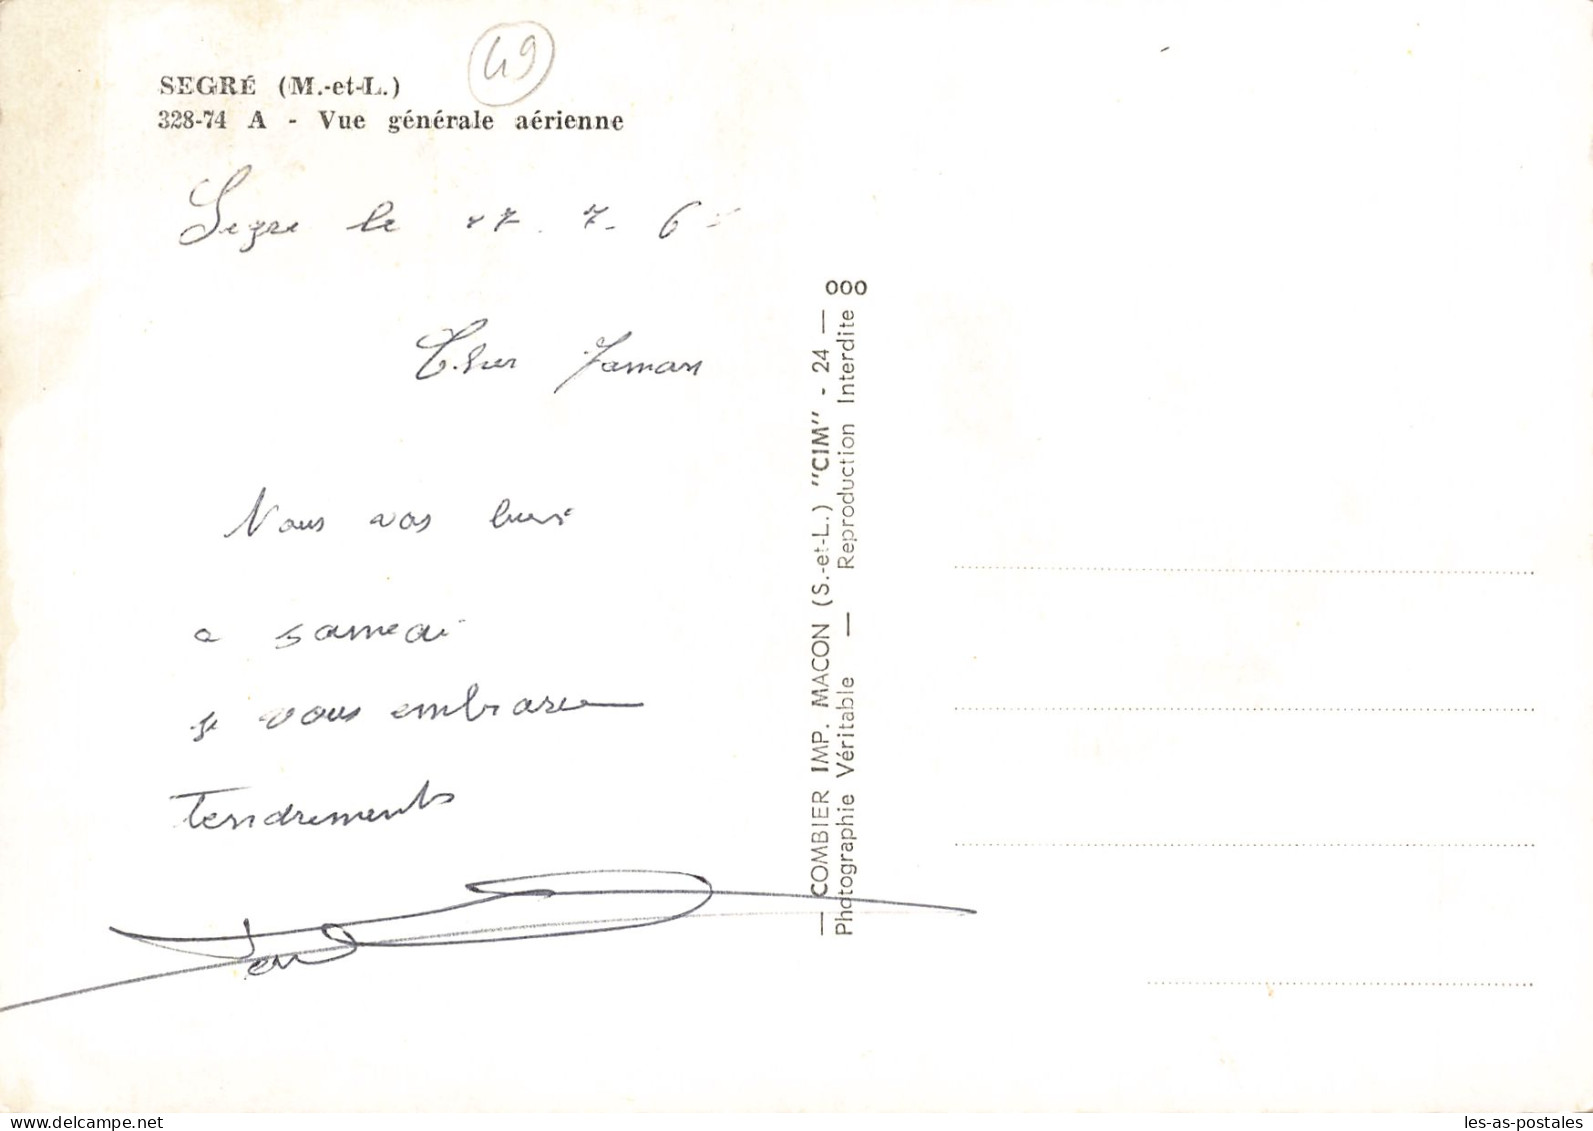 49
SEGRÉ (M.-et-L.)
328-74 A - Vue générale aérienne
Segre le 7. 6
Cher
Nous vos
a samedi
je vous embrasse
Tendrements
— COMBIER IMP. MACON (S.-et-L.) "CIM" - 24 —
Photographie Véritable — Reproduction Interdite
000
www.delcampe.net
les-as-postales